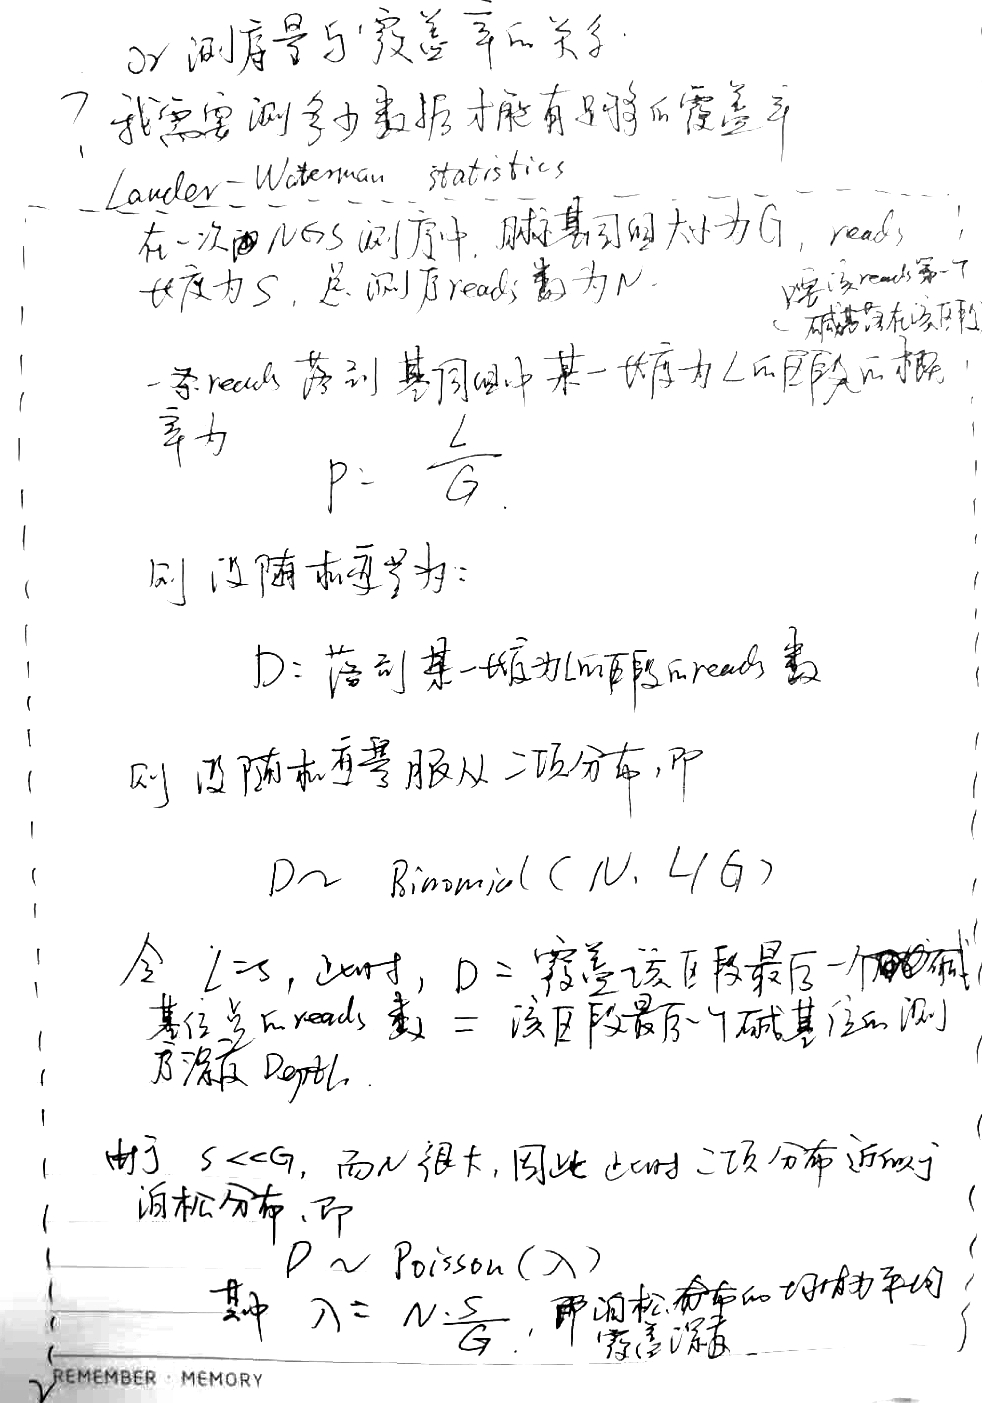 or 测序量与覆盖率的关系.
? 我需要测多少数据才能有足够的覆盖率
Lander-Waterman statistics
在一次NGS测序中, 目标基因组大小为G, reads
长度为S, 总测序reads数为N.
要该reads第一个
碱基落在该区段
一条reads落到基因组中某一长度为L的区段的概
率为
P = L/G.
则设随机变量为:
D: 落到某一长度为L的区段的reads数
则设随机变量服从二项分布, 即
D ~ Binomial(N, L/G)
令 L=S, 此时, D = 覆盖该区段最后一个碱
基位点的reads数 = 该区段最后一个碱基位的测
序深度 Depth.
由于 S<<G, 而N很大, 因此此时二项分布近似于
泊松分布, 即
D ~ Poisson(λ)
其中 λ = N·S/G, 即泊松分布的均值为平均
覆盖深度
REMEMBER · MEMORY